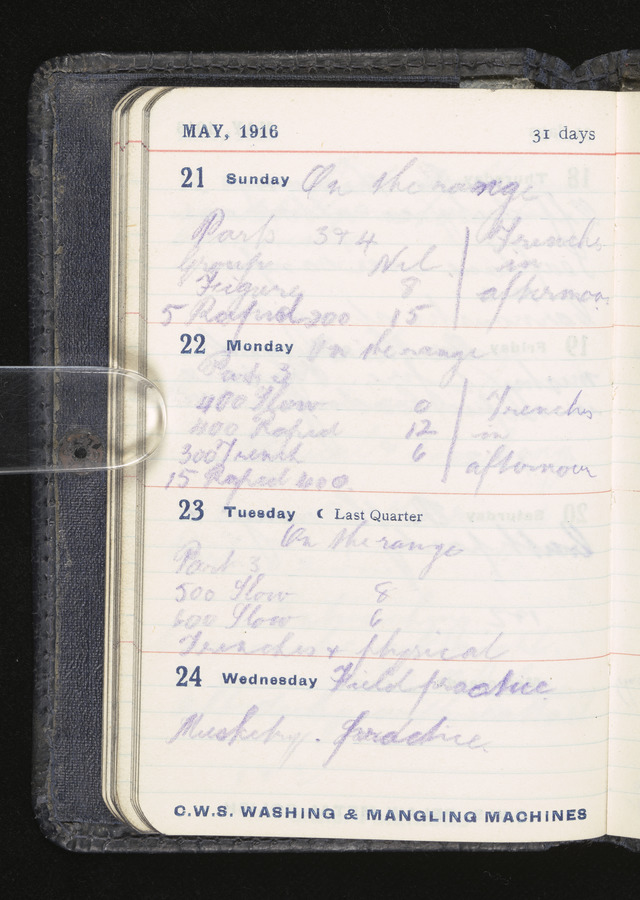 MAY, 1916 31 days
21 Sunday On the range
Parts 3 & 4 Trenches
Groups Nil in
Figure 8 afternoon
5 Rapid 200 15
22 Monday On the range
Parts 3
400 Slow 0 Trenches
400 Rapid 12 in
300 Trench 6 afternoon
15 Rapid 400
23 Tuesday ☾ Last Quarter
On the range
Part 3
500 Slow 8
600 Slow 6
Trenches & physical
24 Wednesday Field practice
Musketry. practice.
C.W.S. WASHING & MANGLING MACHINES